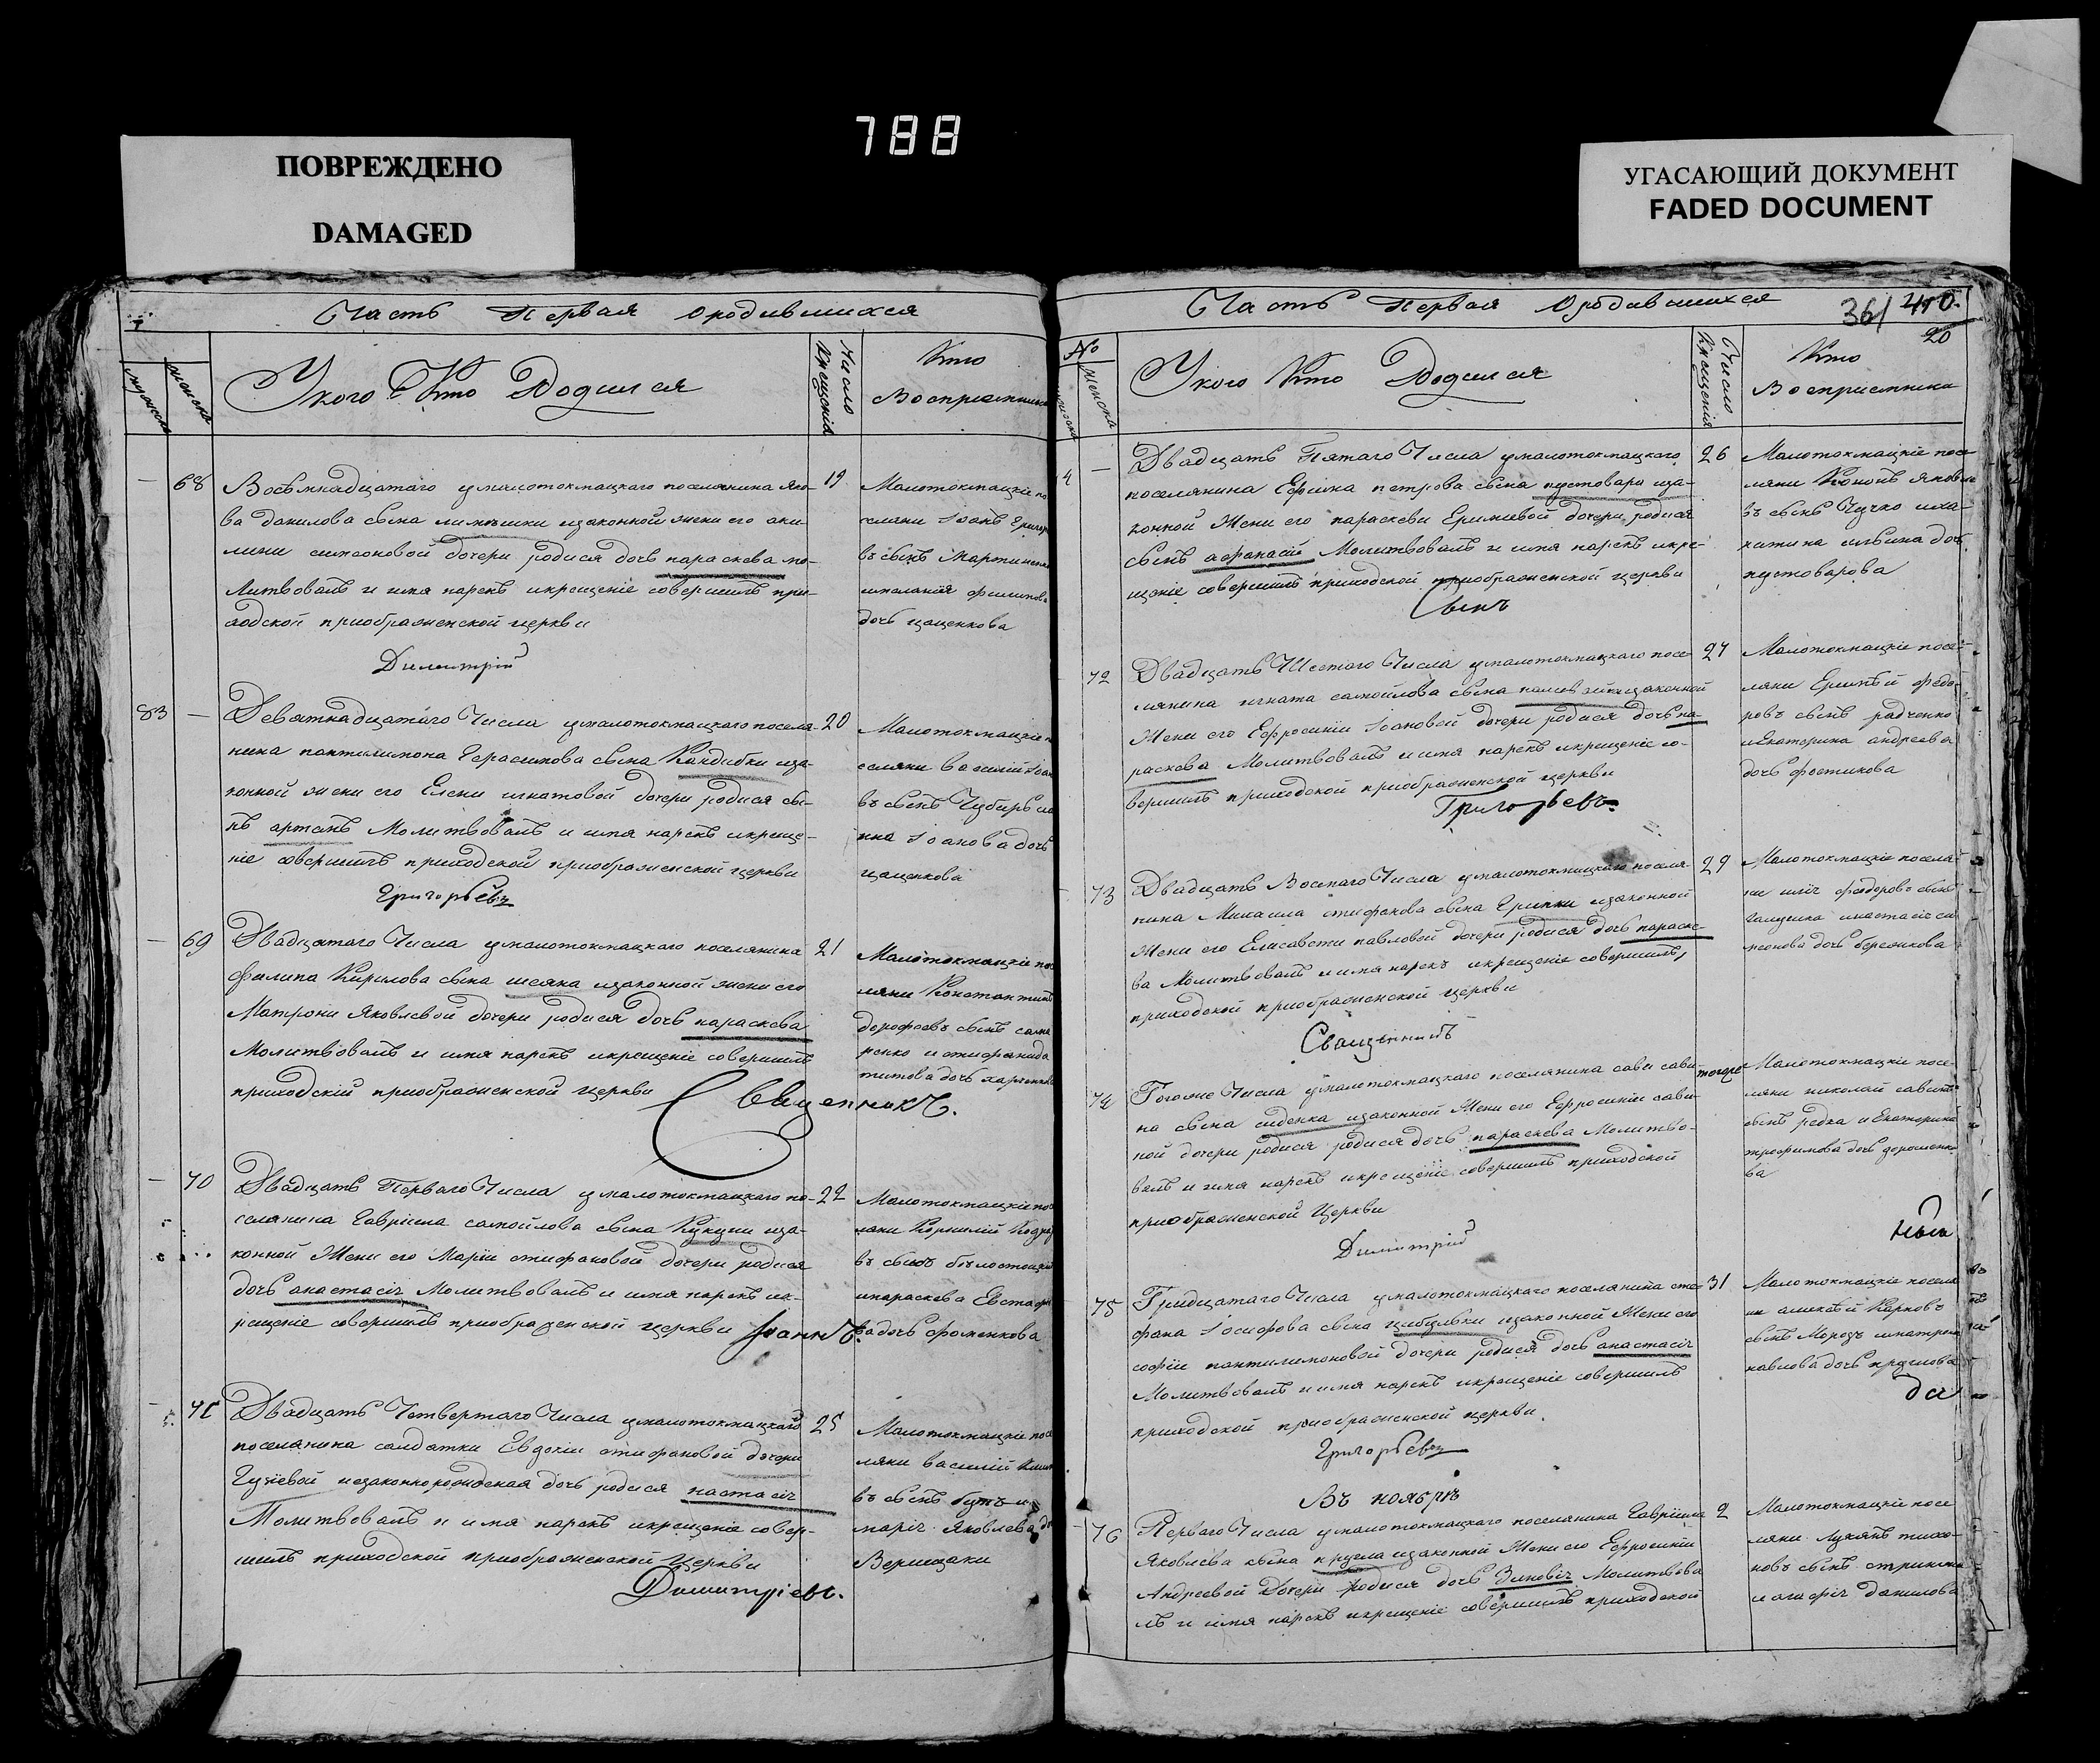 788
ПОВРЕЖДЕНО
DAMAGED
УГАСАЮЩИЙ ДОКУМЕНТ
FADED DOCUMENT
Часть Первая Ородившихся
мужеска
женска
Укого Кто Родился
Число Крещенія
Кто
Восприемники
— 68
Восѣмнадцатаго умалотокмацкаго поселянина Яко-
ва данилова сѣна изаконной жени его аки-
лини симеоновой дочери родися дочь параскева мо-
литвовалъ и имя нарекъ икрещеніе совершилъ при-
ходской приображенской церкви
Димитрій
19
Малотокмацкіе по
селяни Іоанъ Григор
въ сѣнъ Мартиненко
имеланія филипова
дочь цаценкова
83 —
Девятнадцатаго Числа умалотокмацкаго поселя-
нина пантилимона Герасимова сѣна Кандибки иза-
конной жени его Елени игнатовой дочери родися сѣ-
нъ артамъ Молитвовалъ и имя нарекъ икреще-
ніе совершилъ приходской приображенской церкви
Григорьевъ
20
Малотокмацкіе по
селяни василій Іоан
въ сѣнъ Чубирь
Іоанова дочь
цаценкова
— 69
Двадцатаго Числа умалотокмацкаго поселянина
филипа Кирилова сѣна шсяка изаконной жени его
Матрони Яковлевой дочери родися дочь параскева
Молитвовалъ и имя нарекъ икрещеніе совершилъ
приходскій приображенской церкви
Священникъ.
21
Малотокмацкіе пос
ляни Константинъ
дорофеевъ сѣнъ
титова дочь
— 70
Двадцать Перваго Числа умалотокмацкаго по-
селянина Гавріила самойлова сѣна Кукузи иза-
конной Жени его Маріи стифановой дочери родися
дочь анастасія Молитвовалъ и имя нарекъ ик-
рещеніе совершилъ приображенской церкви Іоаннъ.
22
Малотокмацкіе пос
ляни Корнилій Кодра
въ сѣнъ бѣлостоцкій
ипараскева Евстафі
ва дочь фоменкова
— 71
Двадцать Четвертаго Числа умалотокмацкаго
поселянина салдатки Евдокіи стифановой дочери
Гузіевой незаконнорожденая дочь родися настасія
Молитвовалъ и имя нарекъ икрещеніе совер-
шилъ приходской приображенской церкви
Димитріевъ.
25
Малотокмацкіе посе
ляни василій
въ сѣнъ бутъ и
марія Яковлева до
Верищаки
Часть Первая Ородившихся
36/ 410.
20
№
женска
Укого Кто Родился
Число Крещенія
Кто
Восприемники
4 —
Двадцать Пятаго Числа умалотокмацкаго
поселянина Ефима петрова сѣна пустовара иза-
конной Жени его параскеви Еримиевой дочери родися
сѣнъ афанасій Молитвовалъ и имя нарекъ икре-
щеніе совершилъ приходской приображенской церкви
Сынъ
26
Малотокмацкіе посе
ляни Кононъ Яковле
въ сѣнъ Чучко иха-
ритина ильина доч
пустоварова
72
Двадцать Шестаго Числа умалотокмацкаго посе-
лянина игната самойлова сѣна изаконной
Жени его Ефросиніи Іоановой дочери родися дочь па-
раскева Молитвовалъ и имя нарекъ икрещеніе со-
вершилъ приходской приображенской церкви
Григорьевъ.
27
Малотокмацкіе посе-
ляни Еримѣй федо-
ровъ сѣнъ радченко
иЕкатерина андреева
дочь фостикова
73
Двадцать Восмаго Числа умалотокмацкаго поселя-
нина Михаила стифанова сѣна Грипки изаконной
Жени его Елисавети павловой дочери родися дочь параске-
ва Молитвовалъ и имя нарекъ икрещеніе совершилъ,
приходской приображенской церкви
Священникъ
29
Малотокмацкіе поселя-
ни ілія федоровъ сѣнъ
галушка инастасія си
меонова дочь бережкова
74
Тогоже Числа умалотокмацкаго поселянина сави сави-
на сѣна сиденка изаконной Жени его Ефросиніи сави-
ной дочери родися родися дочь параскева Молитво-
валъ и имя нарекъ икрещеніе совершилъ приходской
приображенской Церкви
Димитрій
тогоже
Малотокмацкіе посе-
ляни николай савинъ
сѣнъ редка и Екатерина
трофимова дочь дорошенко
ва
75
Тридцатаго Числа умалотокмацкаго поселянина сте-
фана Іосифова сѣна цибулѣки изаконной Жени его
софіи пантилимоновой дочери родися дочь анастасія
Молитвовалъ и имя нарекъ икрещеніе совершилъ
приходской приображенской церкви.
Григорьевъ
31
Малотокмацкіе поселя
ни алексѣй Карповъ
сѣнъ Морозъ иматрона
павлова дочь круглова
да
Въ ноябрѣ
76
Перваго Числа умалотокмацкаго поселянина Гавріила
Яковлева сѣна кругла изаконній Жени его Ефросиніи
Андреевой Дочери родися дочь Зиновія Молитвова
лъ и имя нарекъ икрещеніе совершилъ приходской
2
Малотокмацкіе посе
ляни лукянъ тихо-
новъ сѣнъ
и агафія данилова